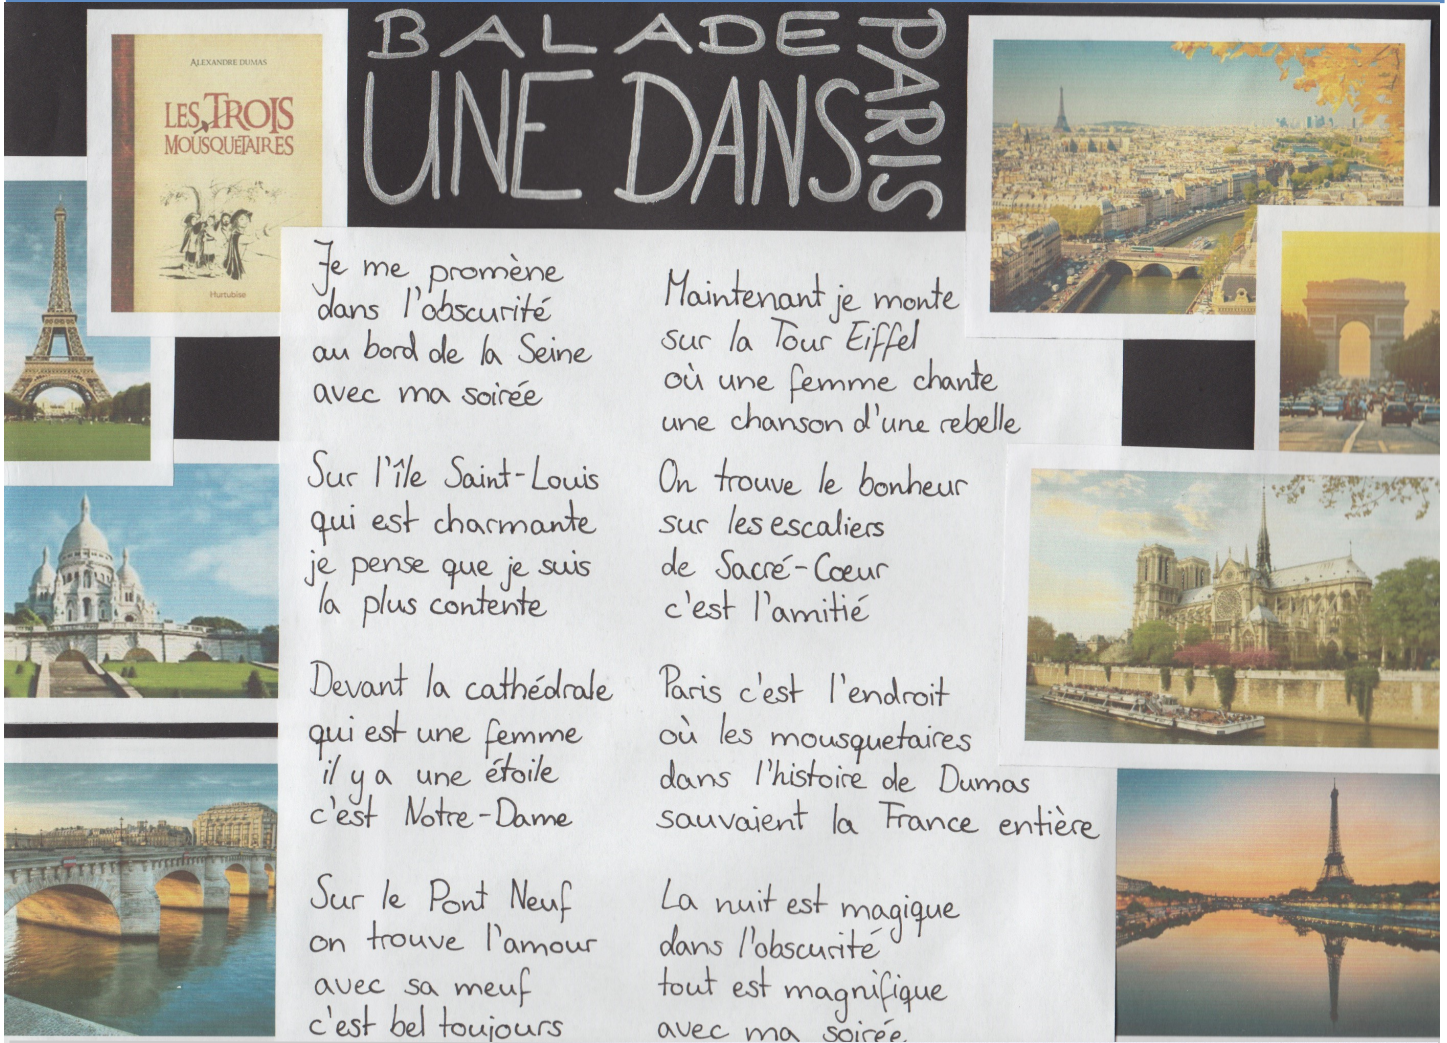 BALADE
UNE DANS
PARIS
ALEXANDRE DUMAS
LES TROIS
MOUSQUETAIRES
Hurtubise
Je me promène
dans l'obscurité
au bord de la Seine
avec ma soirée
Sur l'île Saint-Louis
qui est charmante
je pense que je suis
la plus contente
Devant la cathédrale
qui est une femme
il y a une étoile
c'est Notre-Dame
Sur le Pont Neuf
on trouve l'amour
avec sa meuf
c'est bel toujours
Maintenant je monte
sur la Tour Eiffel
où une femme chante
une chanson d'une rebelle
On trouve le bonheur
sur les escaliers
de Sacré-Cœur
c'est l'amitié
Paris c'est l'endroit
où les mousquetaires
dans l'histoire de Dumas
sauvaient la France entière
La nuit est magique
dans l'obscurité
tout est magnifique
avec ma soirée